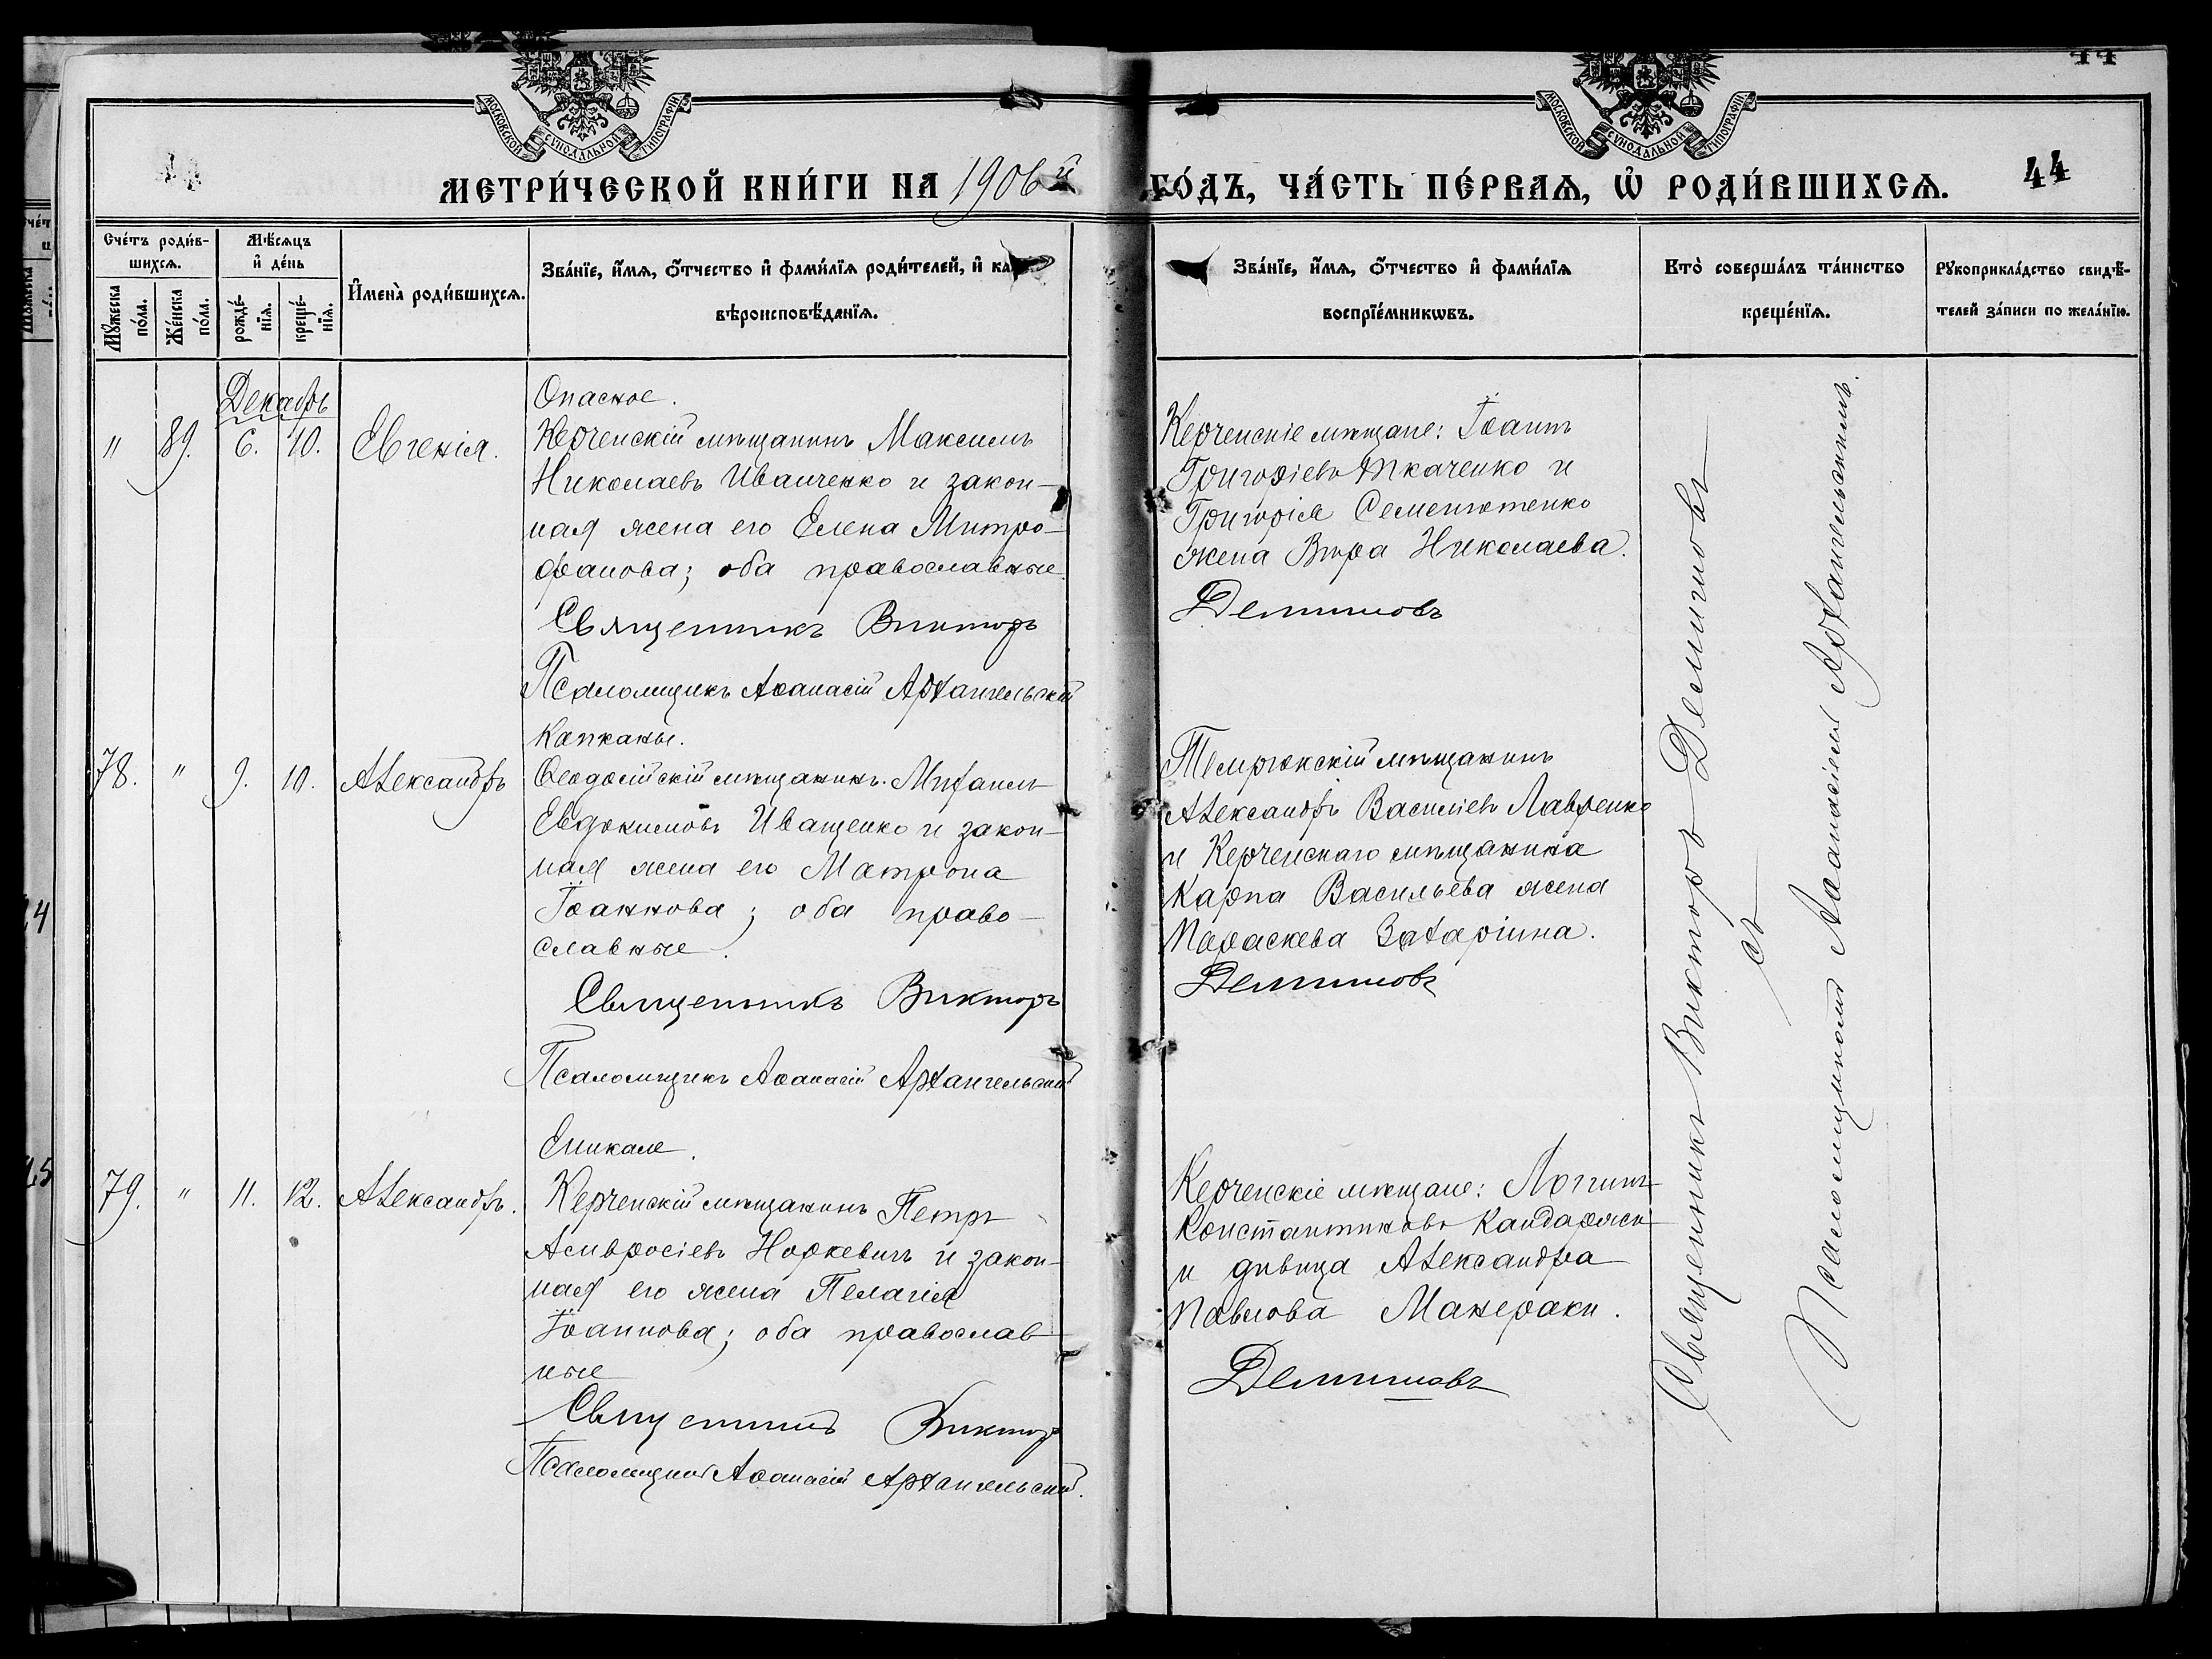 МОСКОВСКОЙ СѴНОДАЛЬНОЙ ТИПОГРАФІИ.
МОСКОВСКОЙ СѴНОДАЛЬНОЙ ТИПОГРАФІИ.
МЕТРИ́ЧЕСКОЙ КНИ́ГИ НА 1906й ГО́ДЪ, ЧА́СТЬ ПЕ́РВАЯ, Ѡ҆ РОДИ́ВШИХСЯ. 44
Сче́тъ роди́в-
шихся.
Мꙋ́жеска по́ла.
Же́нска по́ла.
Мѣ́сяцъ
и҆ де́нь
рожде́-
нїя.
креще́-
нїя.
И҆мена̀ роди́вшихся.
Зва́нїе, и҆́мя, ѻ҆́тчество и҆ фами́лїя роди́телей, и҆
вѣроисповѣ́данїя.
Зва́нїе, и҆́мя, ѻ҆́тчество и҆ фами́лїя
воспрїе́мникѡвъ.
Кто̀ соверша́лъ та́инство
креще́нїя.
Рꙋкоприкла́дство свидѣ́-
телей за́писи по жела́нїю.
Декабрь
" 89. 6. 10. Евгенія.
Опасное.
Керченскій мѣщанинъ Максимъ
Николаевъ Иванченко и закон-
ная жена его Елена Митро-
фанова; оба православные.
Священникъ Викторъ
Псаломщикъ Аѳанасій Архангельскій
Керченскіе мѣщане: Іоаннъ
Григоріевъ Ткаченко и
Григорія Семенютенко
жена Вѣра Николаева.
Деминовъ
78. " 9. 10. Александръ
Капканы.
Ѳеодосійскій мѣщанинъ Михаилъ
Евдокимовъ Иващенко и закон-
ная жена его Матрона
Іоаннова; оба право-
славные.
Священникъ Викторъ
Псаломщикъ Аѳанасій Архангельскій
Темрюкскій мѣщанинъ
Александръ Василіевъ Лавренко
и Керченскаго мѣщанина
Карпа Васильева жена
Параскева Захаріина.
Деминовъ
79. " 11. 12. Александръ.
Еникале.
Керченскій мѣщанинъ Петръ
Амвросіевъ Норкевичъ и закон-
ная его жена Пелагія
Іоаннова; оба православ-
ные
Священникъ Викторъ
Псаломщикъ Аѳанасій Архангельскій.
Керченскіе мѣщане: Логинъ
Константиновъ
и дѣвица Александра
Павлова Манераки.
Деминовъ
Священникъ Викторъ Деминовъ
съ
Псаломщикомъ Аѳанасіемъ Архангельскимъ.